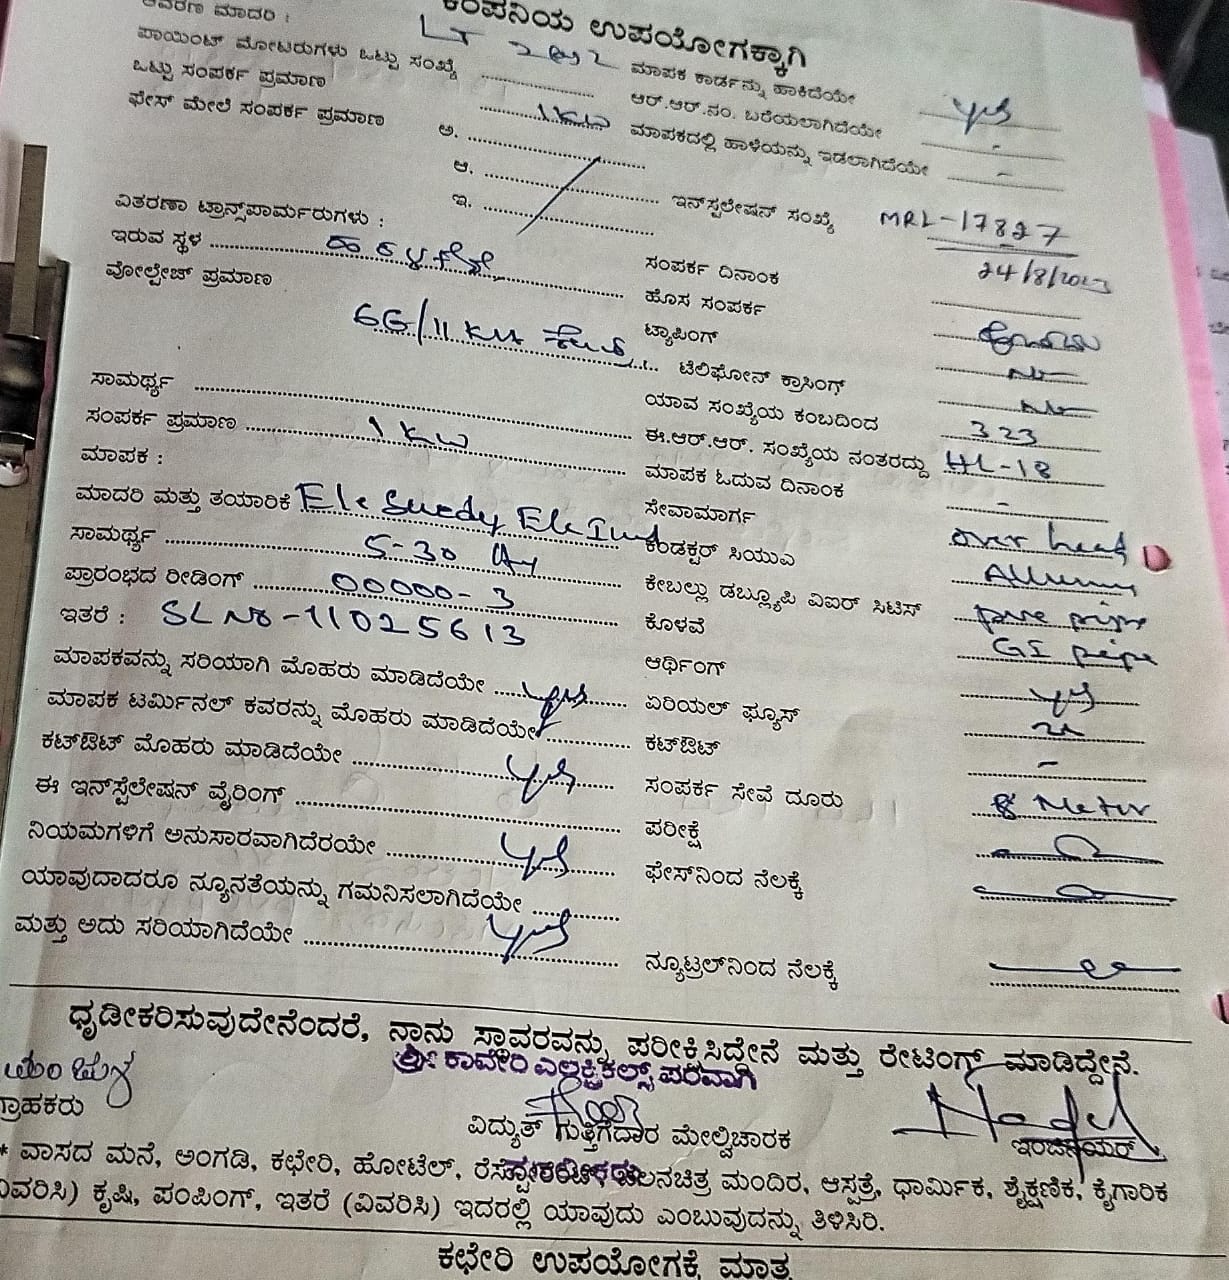 ಕಂಪನಿಯ ಉಪಯೋಗಕ್ಕಾಗಿ
ಮಾದರಿ : LT
ಪಾಯಿಂಟ್ ಮೋಟರುಗಳು ಒಟ್ಟು ಸಂಖ್ಯೆ ಮಾಪಕ ಕಾರ್ಡನ್ನು ಹಾಕಿದೆಯೇ yes
ಒಟ್ಟು ಸಂಪರ್ಕ ಪ್ರಮಾಣ 1 KW ಆರ್.ಆರ್.ನಂ. ಬರೆಯಲಾಗಿದೆಯೇ -
ಫೇಸ್ ಮೇಲೆ ಸಂಪರ್ಕ ಪ್ರಮಾಣ ಅ. ಮಾಪಕದಲ್ಲಿ ಹಾಳೆಯನ್ನು ಇಡಲಾಗಿದೆಯೇ -
ಆ. ಇನ್‌ಸ್ಟಲೇಷನ್ ಸಂಖ್ಯೆ MRL-17827
ಇ.
ವಿತರಣಾ ಟ್ರಾನ್ಸ್‌ಪಾರ್ಮರುಗಳು : ಸಂಪರ್ಕ ದಿನಾಂಕ 24/8/2023
ಇರುವ ಸ್ಥಳ ಹೊಸ ಸಂಪರ್ಕ
ವೋಲ್ಟೇಜ್ ಪ್ರಮಾಣ 66/11 KV ಟ್ಯಾಪಿಂಗ್
ಟೆಲಿಫೋನ್ ಕ್ರಾಸಿಂಗ್ No
ಸಾಮರ್ಥ್ಯ ಯಾವ ಸಂಖ್ಯೆಯ ಕಂಬದಿಂದ No
ಸಂಪರ್ಕ ಪ್ರಮಾಣ 1 KW ಈ.ಆರ್.ಆರ್. ಸಂಖ್ಯೆಯ ನಂತರದ್ದು 323
ಮಾಪಕ : ಮಾಪಕ ಓದುವ ದಿನಾಂಕ HL-18
ಮಾದರಿ ಮತ್ತು ತಯಾರಿಕೆ ಸೇವಾಮಾರ್ಗ -
ಸಾಮರ್ಥ್ಯ 5-30 ಕಂಡಕ್ಟರ್ ಸಿಯುಎ over head
ಪ್ರಾರಂಭದ ರೀಡಿಂಗ್ 00000-3 ಕೇಬಲ್ಲು ಡಬ್ಲ್ಯೂಪಿ ವಿಐರ್ ಸಿಟಿಸ್
ಇತರೆ : SL No-11025613 ಕೊಳವೆ
ಆರ್ಥಿಂಗ್ GI pipe
ಮಾಪಕವನ್ನು ಸರಿಯಾಗಿ ಮೊಹರು ಮಾಡಿದೆಯೇ yes ಏರಿಯಲ್ ಫ್ಯೂಸ್ yes
ಮಾಪಕ ಟರ್ಮಿನಲ್ ಕವರನ್ನು ಮೊಹರು ಮಾಡಿದೆಯೇ ಕಟ್‌ಔಟ್
ಕಟ್‌ಔಟ್ ಮೊಹರು ಮಾಡಿದೆಯೇ yes ಸಂಪರ್ಕ ಸೇವೆ ದೂರು -
ಈ ಇನ್‌ಸ್ಟೆಲೇಷನ್ ವೈರಿಂಗ್ ಪರೀಕ್ಷೆ 8 Meter
ನಿಯಮಗಳಿಗೆ ಅನುಸಾರವಾಗಿದೆರಯೇ yes ಫೇಸ್‌ನಿಂದ ನೆಲಕ್ಕೆ
ಯಾವುದಾದರೂ ನ್ಯೂನತೆಯನ್ನು ಗಮನಿಸಲಾಗಿದೆಯೇ
ಮತ್ತು ಅದು ಸರಿಯಾಗಿದೆಯೇ yes ನ್ಯೂಟ್ರಲ್‌ನಿಂದ ನೆಲಕ್ಕೆ
ಧೃಡೀಕರಿಸುವುದೇನೆಂದರೆ, ನಾನು ಸ್ಥಾವರವನ್ನು ಪರೀಕ್ಷಿಸಿದ್ದೇನೆ ಮತ್ತು ರೇಟಿಂಗ್ ಮಾಡಿದ್ದೇನೆ.
ಶ್ರೀ ಕಾವೇರಿ ಎಲೆಕ್ಟ್ರಿಕಲ್ಸ್ ಪರವಾಗಿ
ಗ್ರಾಹಕರು ವಿದ್ಯುತ್ ಗುತ್ತಿಗೆದಾರ ಮೇಲ್ವಿಚಾರಕ ಇಂಜಿನಿಯರ್
* ವಾಸದ ಮನೆ, ಅಂಗಡಿ, ಕಛೇರಿ, ಹೋಟೆಲ್, ಚಲನಚಿತ್ರ ಮಂದಿರ, ಆಸ್ಪತ್ರೆ, ಧಾರ್ಮಿಕ, ಶೈಕ್ಷಣಿಕ, ಕೈಗಾರಿಕ
(ವಿವರಿಸಿ) ಕೃಷಿ, ಪಂಪಿಂಗ್, ಇತರೆ (ವಿವರಿಸಿ) ಇದರಲ್ಲಿ ಯಾವುದು ಎಂಬುವುದನ್ನು ತಿಳಿಸಿರಿ.
ಕಛೇರಿ ಉಪಯೋಗಕ್ಕೆ ಮಾತ್ರ